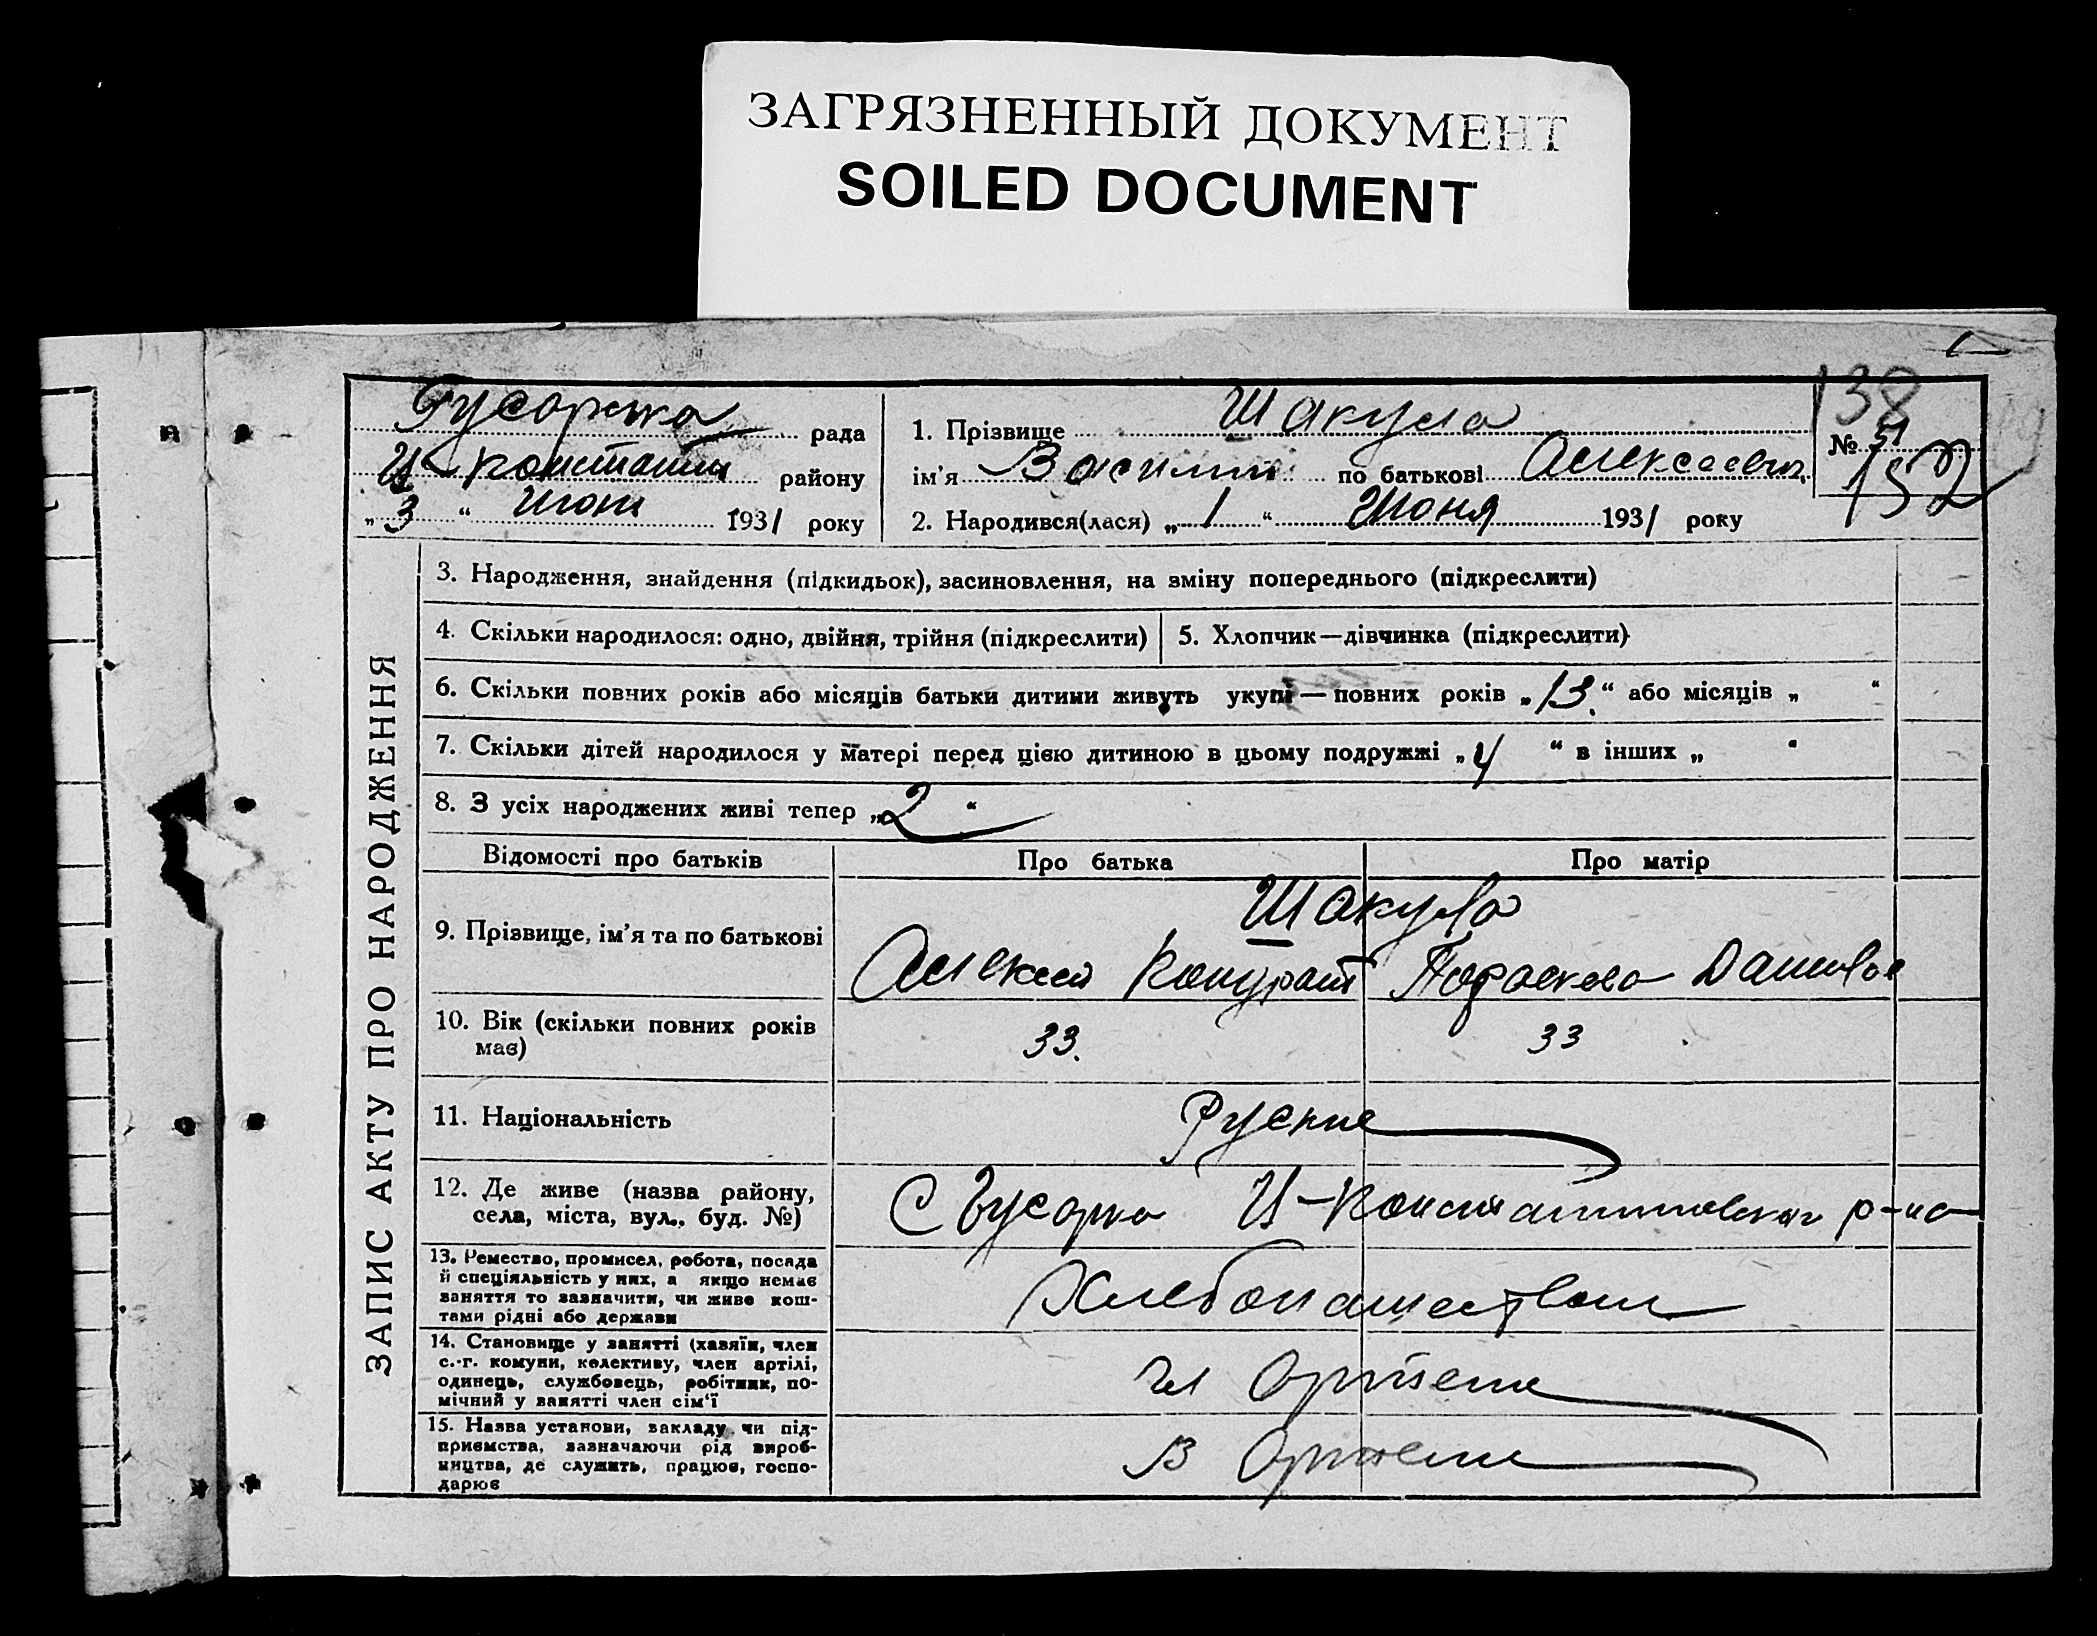 ЗАГРЯЗНЕННЫЙ ДОКУМЕНТ
SOILED DOCUMENT
138
Гусарка рада
И-константин району
„3“ Июня 1931 року
1. Прізвище Шакула
ім’я Василий по батькові Алексеевич
2. Народився(лася) „1“ Июня 1931 року
№ 51
152
ЗАПИС АКТУ ПРО НАРОДЖЕННЯ
3. Народження, знайдення (підкидьок), засиновлення, на зміну попереднього (підкреслити)
4. Скільки народилося: одно, двійня, трійня (підкреслити)
5. Хлопчик—дівчинка (підкреслити)
6. Скільки повних років або місяців батьки дитини живуть укупі—повних років „13“ або місяців „ “
7. Скільки дітей народилося у матері перед цією дитиною в цьому подружжі „4“ в інших „ “
8. З усіх народжених живі тепер „2“
Відомості про батьків Про батька Про матір
Шакула
9. Прізвище, ім’я та по батькові
Алексей Кондрат Параскева Данилов
10. Вік (скільки повних років
має)
33. 33
11. Національність
Руские
12. Де живе (назва району,
села, міста, вул., буд. №)
С Гусарка И-Константиновског р-на
13. Ремество, промисел, робота, посада
й спеціяльність у них, а якщо немає
заняття то зазначити, чи живе кош-
тами рідні або держави
Хлебопашеством
14. Становище у занятті (хазяїн, член
с.-г. комуни, колективу, член артілі,
одинець, службовець, робітник, по-
мічний у занятті член сім‘ї
чл Артели
15. Назва установи, закладу чи під-
приємства, зазначаючи рід вироб-
ництва, де служить, працює, госпо-
дарює
В Артели